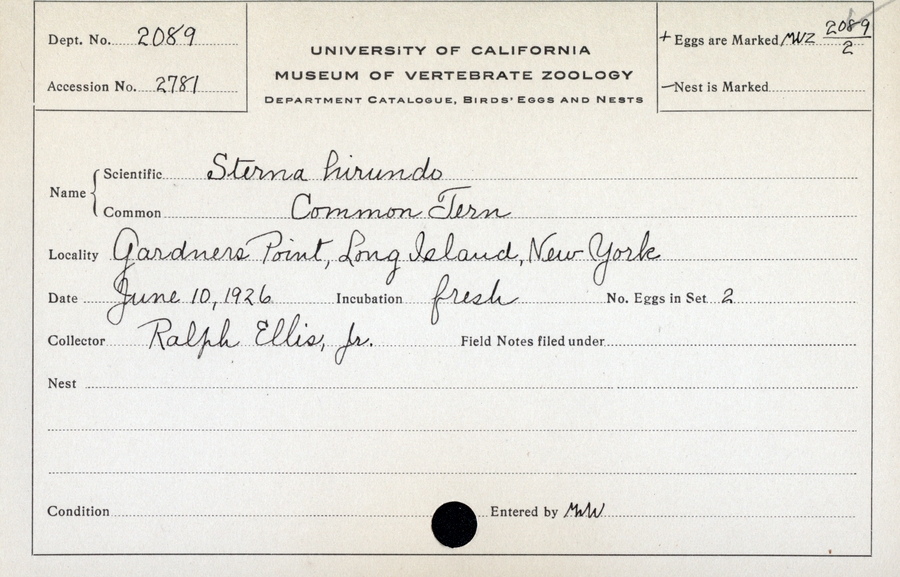 Dept. No. 2089
Accession No. 2781
UNIVERSITY OF CALIFORNIA
MUSEUM OF VERTEBRATE ZOOLOGY
DEPARTMENT CATALOGUE, BIRDS' EGGS AND NESTS
+ Eggs are Marked MVZ 2089/2
— Nest is Marked
Name
Scientific Sterna hirundo
Common Common Tern
Locality Gardners Point, Long Island, New York
Date June 10, 1926 Incubation fresh No. Eggs in Set 2
Collector Ralph Ellis, Jr. Field Notes filed under
Nest
Condition Entered by